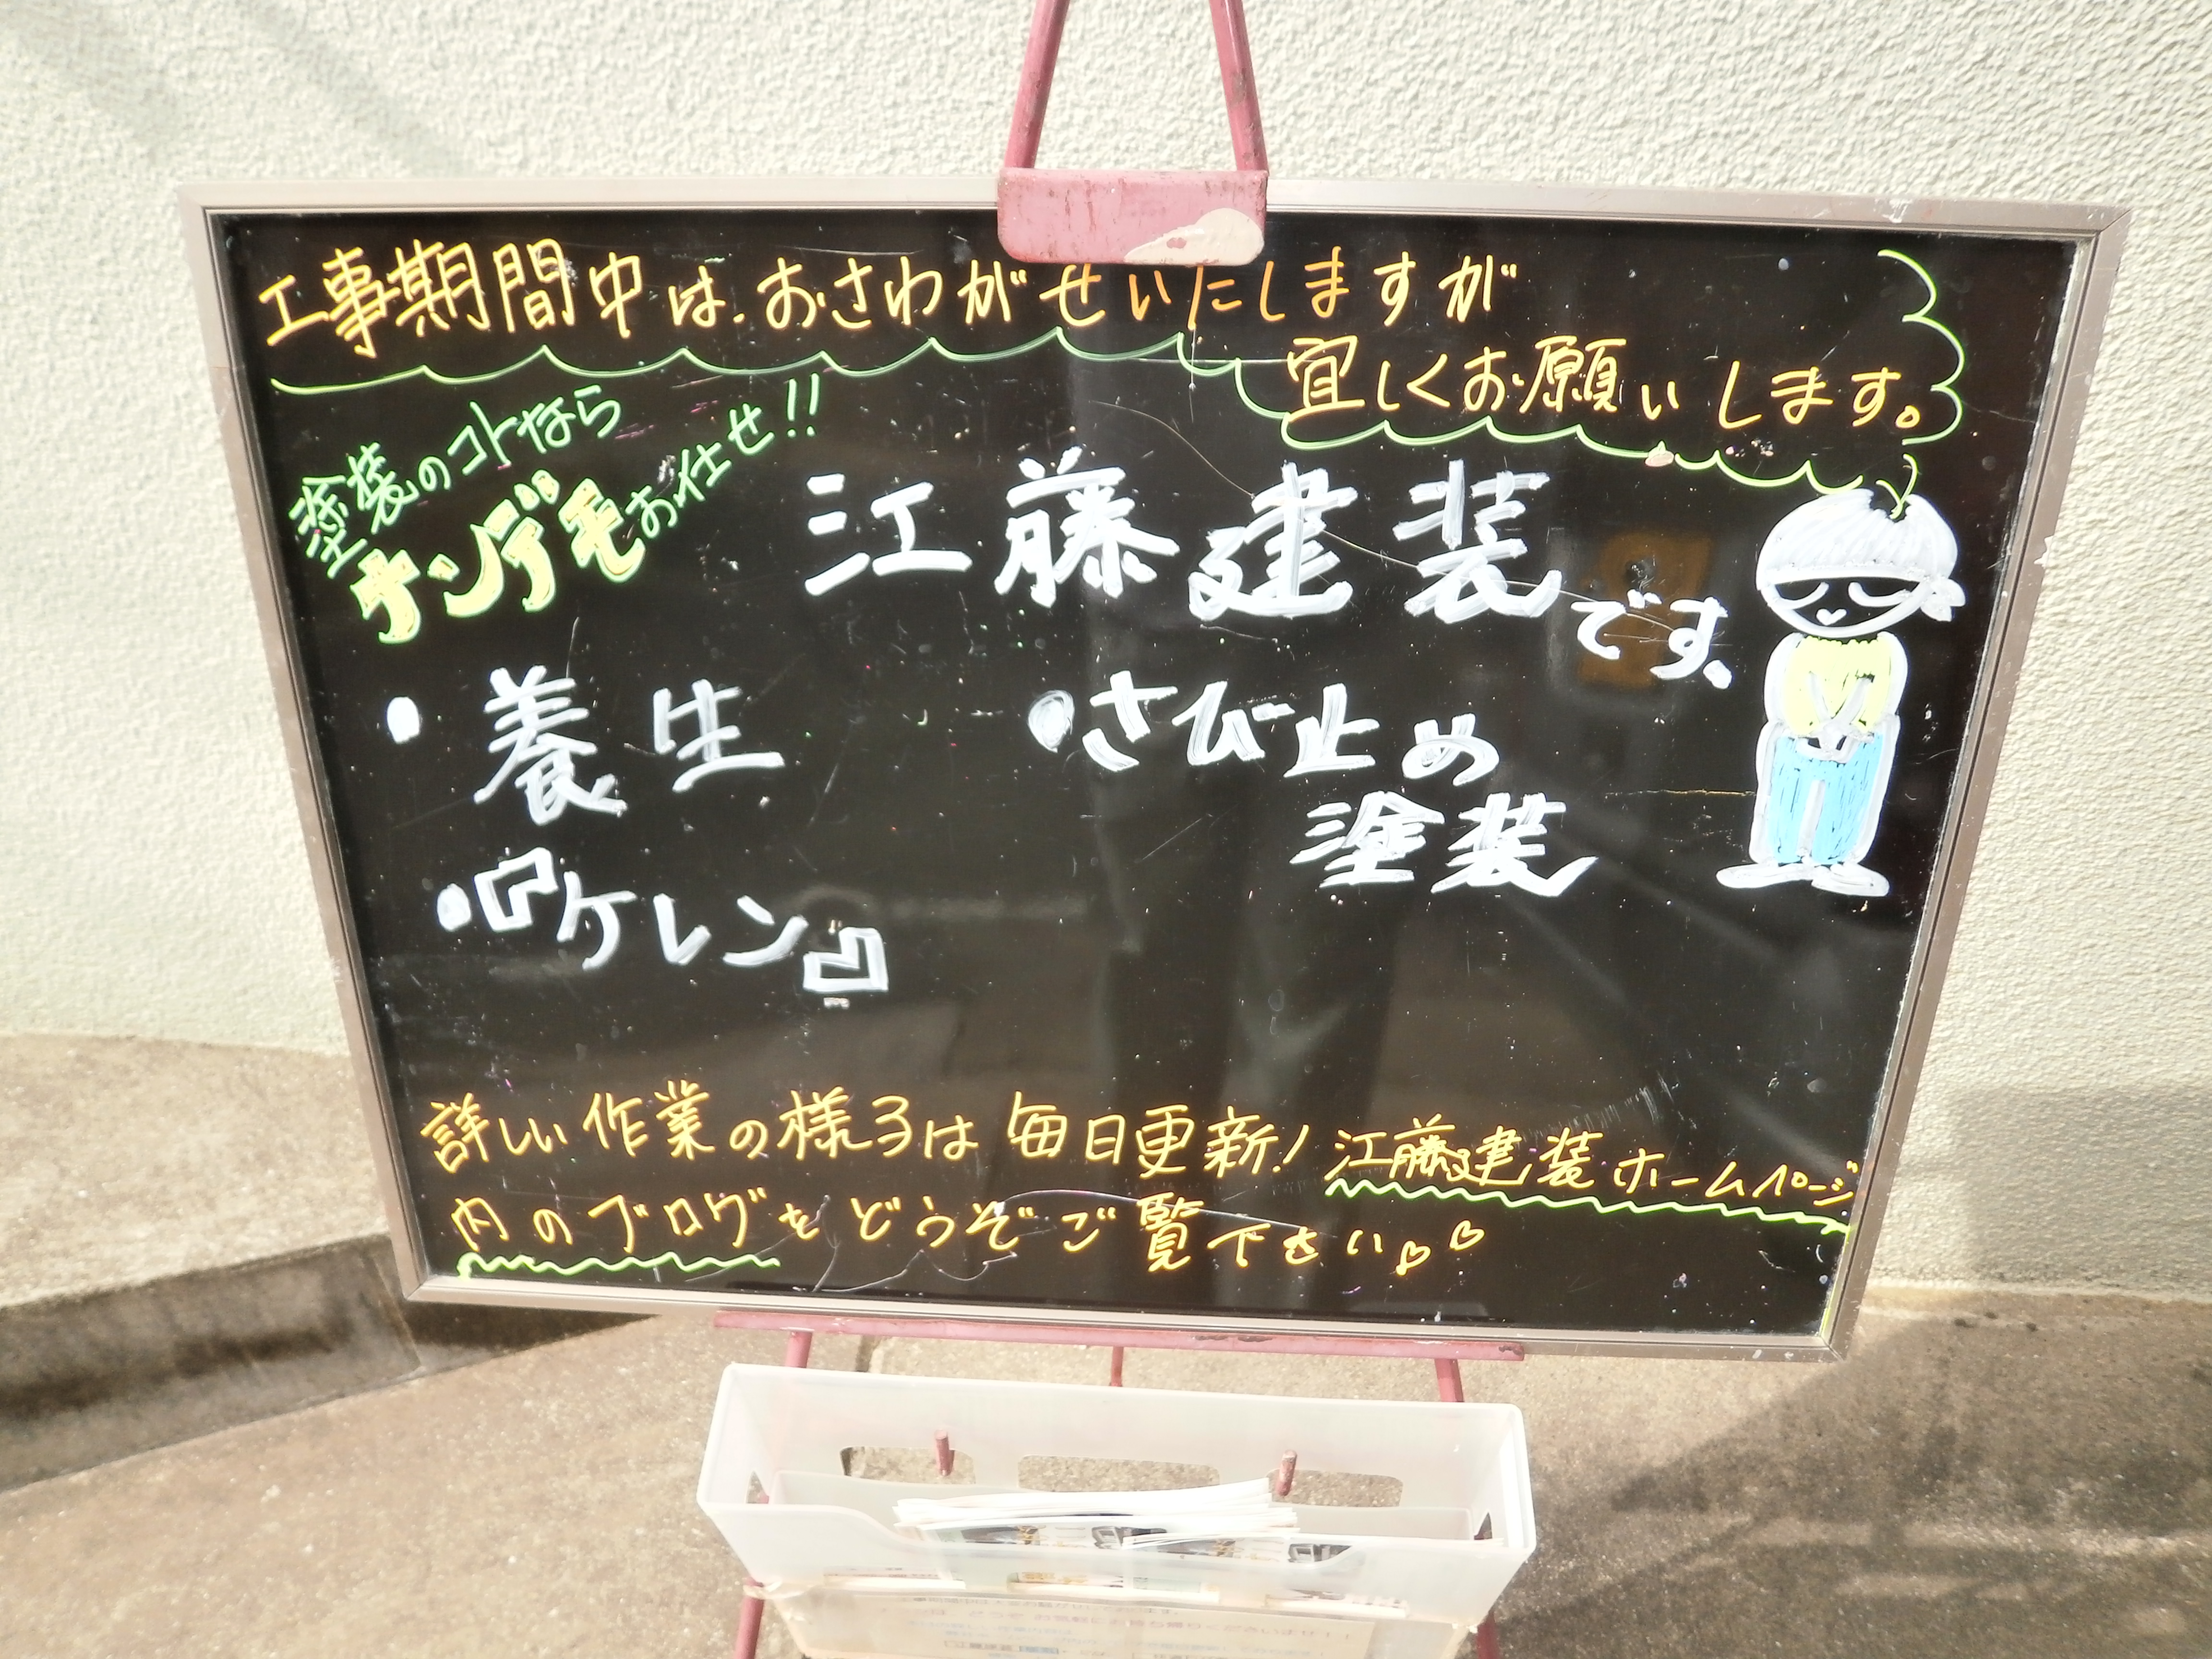 工事期間中は、おさわがせいたしますが
宜しくお願いします。
塗装のコトなら
ナンデモお任せ!!
江藤建装です、
・養生
・さび止め
塗装
・『ケレン』
詳しい作業の様子は毎日更新!江藤建装ホームページ
内のブログをどうぞご覧下さい♪♡